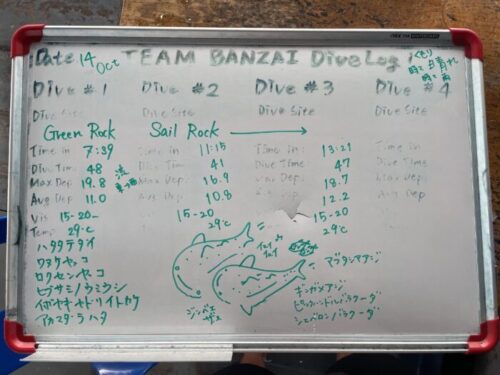 Date 14 Oct
TEAM BANZAI DiveLog
くもり
時々晴れ
時々雨
Dive #1 Dive #2 Dive #3 Dive #4
Dive Site Dive Site Dive Site Dive Site
Green Rock Sail Rock →
Time in 7:39 11:15 Time in: 13:21 Time in
Dive Time 48 Dive Time 41 Dive Time 47 Dive Time
Max Dep 19.8 Max Dep: 16.9 Max Dep: 18.7 Max Dep:
Avg Dep 11.0 Avg Dep 10.8 12.2 Avg Dep
Vis 15-20 15-20 15-20
Temp 29℃ 29℃ 29℃
ハタタテダイ
ワヌケヤッコ
ロクセンヤッコ
イボヤギセドリイトカケ
アカマダラハタ
ジンベエザメ
イェイ
イェイ
ギンガメアジ
ピックハンドルバラクーダ
シェブロンバラクーダ